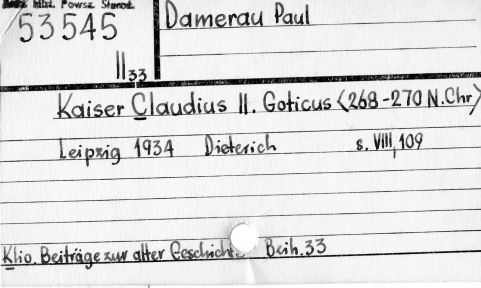 Bibl. Powsz. Starod.
53545
II 33
Damerau Paul
Kaiser Claudius II. Goticus (268-270 N.Chr)
Leipzig 1934 Dieterich s. VIII, 109
Klio. Beiträge zur alter Geschichte Beih. 33